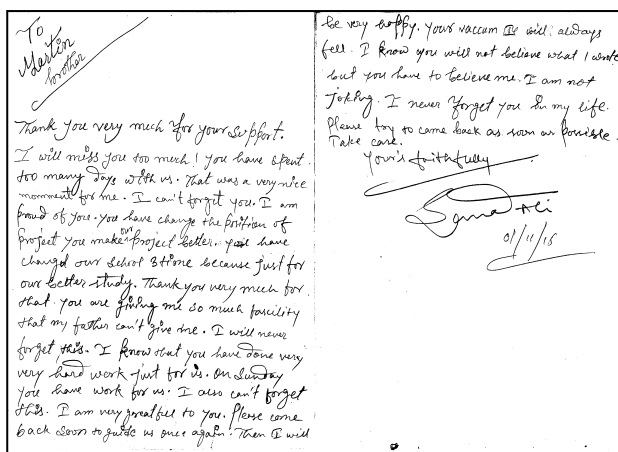 To
Martin
brother
Thank you very much for your support.
I will miss you too much! you have spent
too many days with us. That was a very nice
momment for me. I can't forget you. I am
proud of you. you have change the position of
project you make our project better. you have
changed our school stime because just for
our better study. Thank you very much for
that. you are giving me so much fascility
that my father can't give me. I will never
forget this. I know that you have done very
very hard work just for us. On Sunday
you have work for us. I also can't forget
this. I am very greatful to you. Please come
back soon to guide us once again. Then I will
be very happy. your vaccum is will always
fell. I know you will not believe what I wrote
but you have to believe me. I am not
joking. I never forget you in my life.
Please try to came back as soon as possible.
Take care.
Your's faithfully
Ali
01/11/15